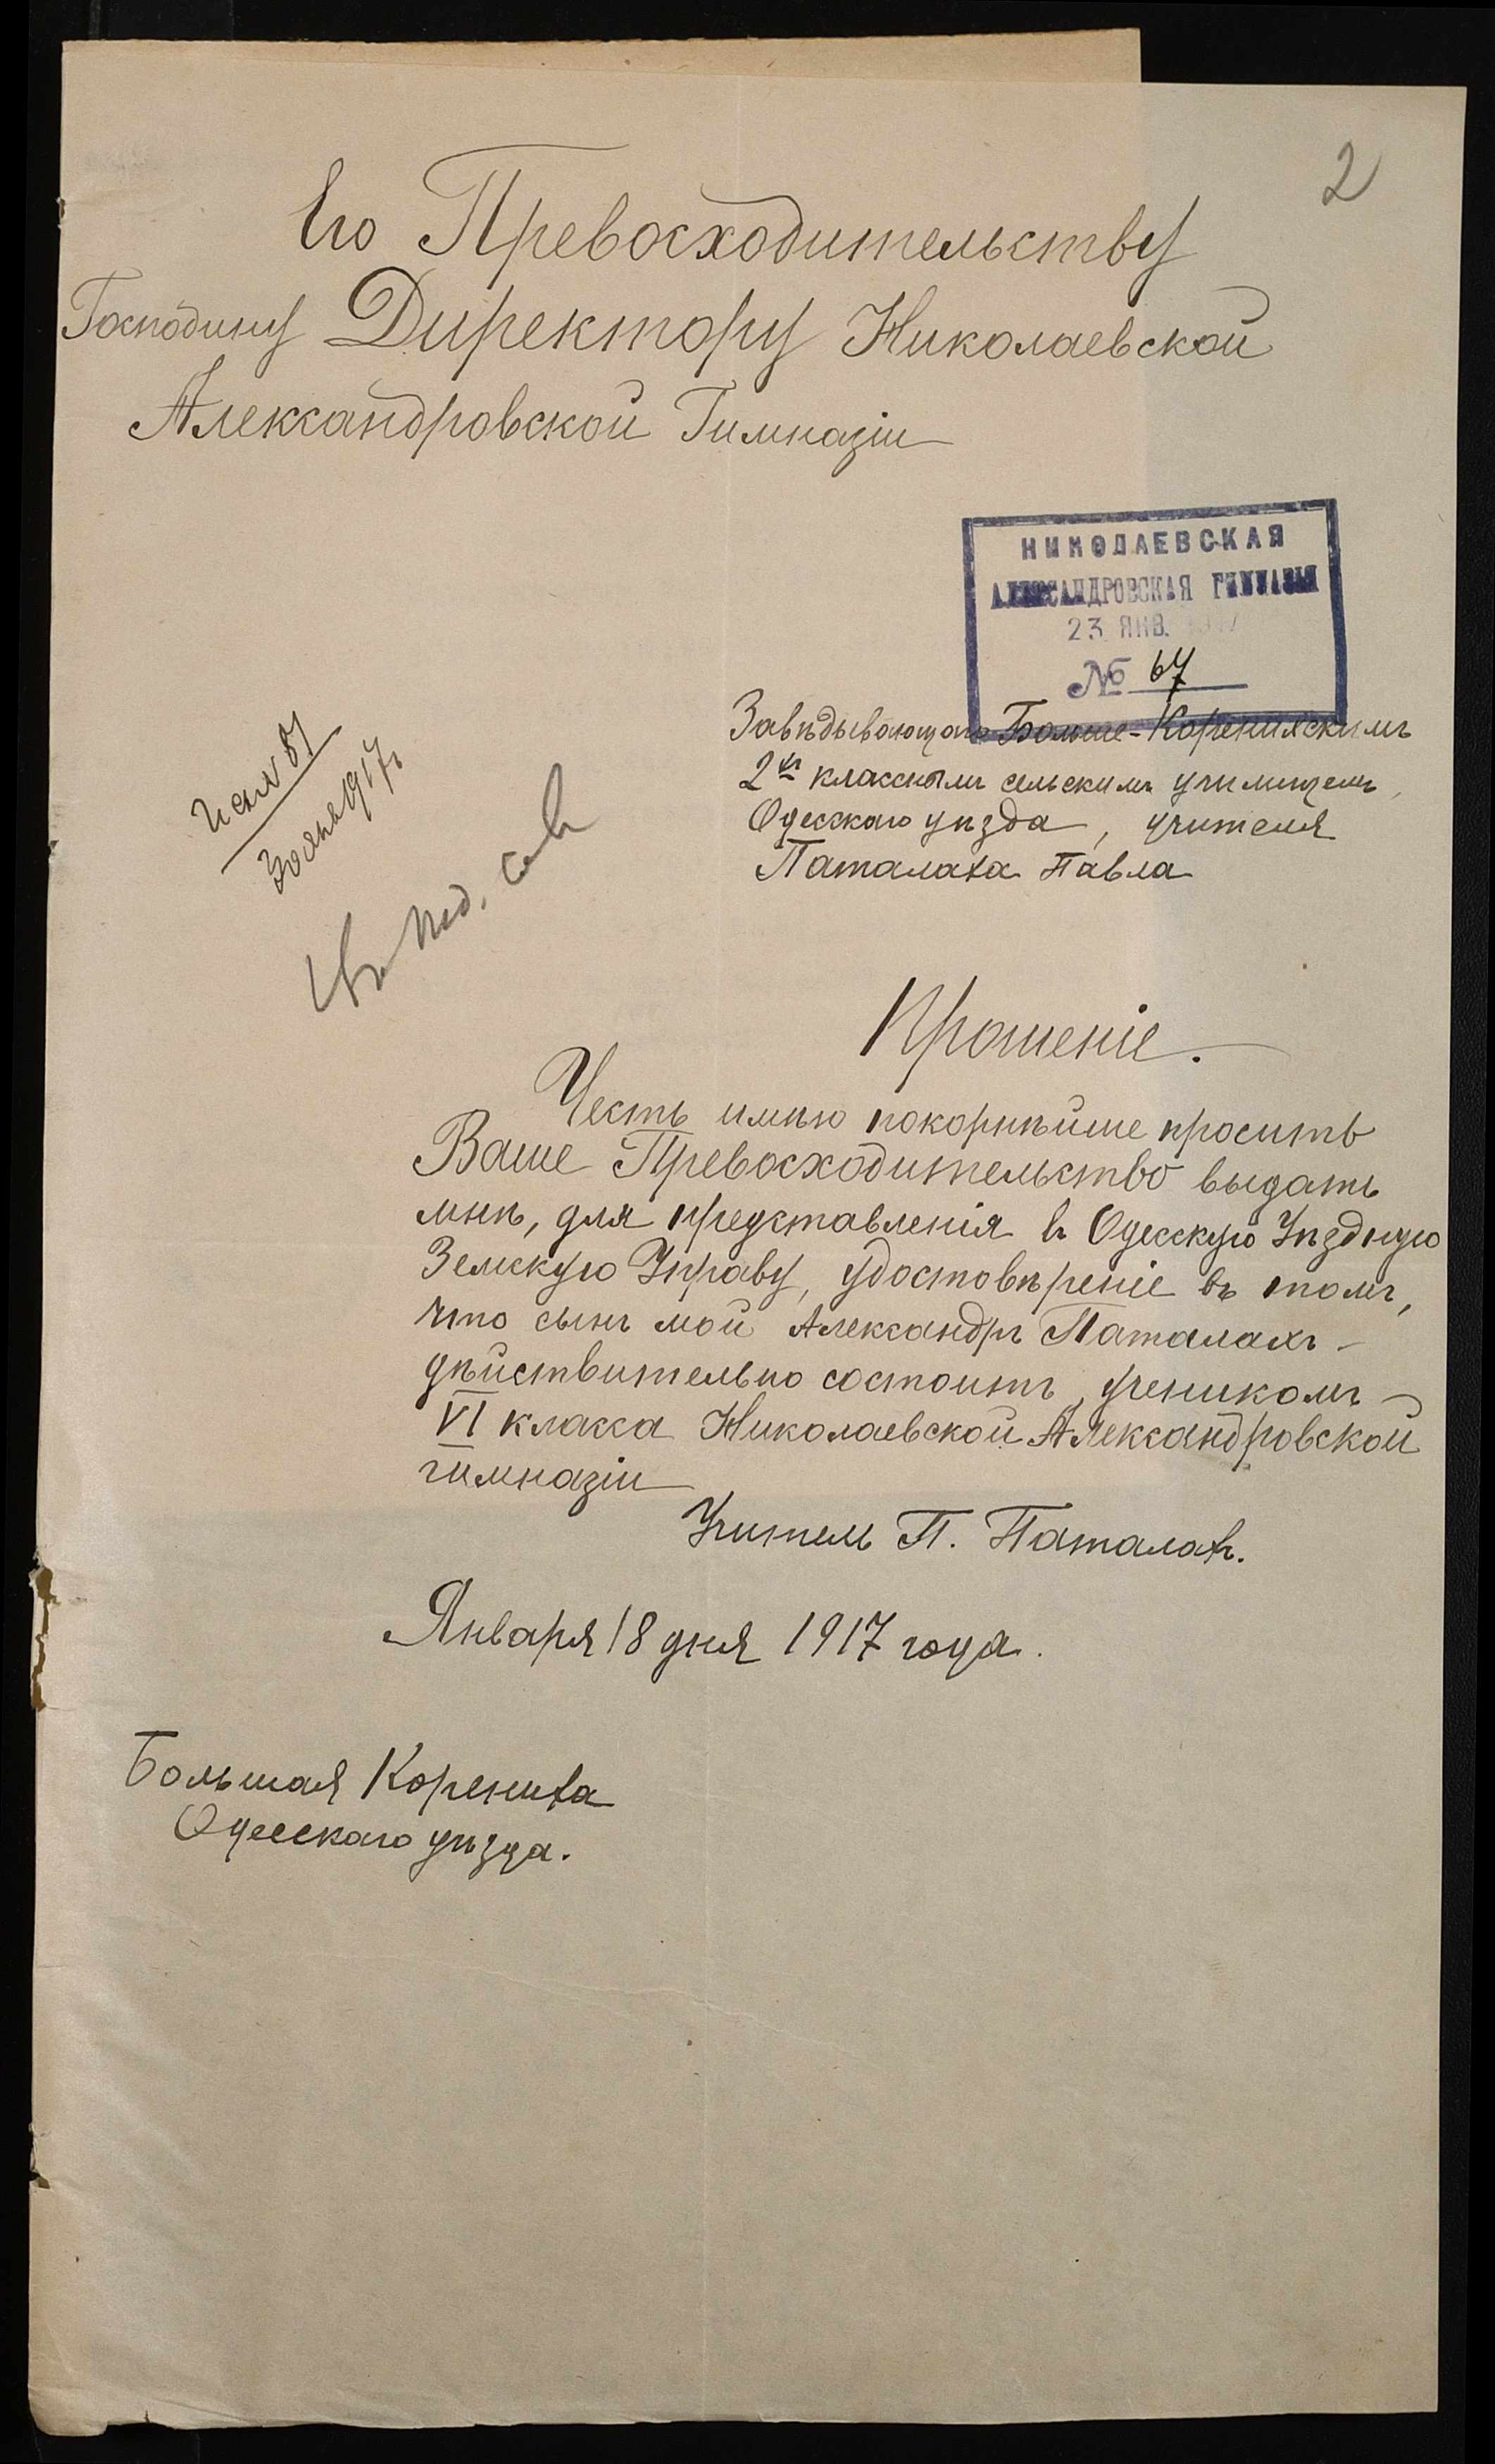 2
Его Превосходительству
Господину Директору Николаевской
Александровской Гимназіи
НИКОЛАЕВСКАЯ
АЛЕКСАНДРОВСКАЯ ГИМНАЗІЯ
23 ЯНВ. 1917
№ 67
Завѣдывающаго Больше-Коренихскимъ
2хъ класснымъ сельскимъ училищемъ,
Одесскаго уѣзда, учителя
Паталаха Павла
Исп N 81
30 янв 1917 г
Въ пед. сов
Прошеніе.
Честь имѣю покорнѣйше просить
Ваше Превосходительство выдать
мнѣ, для представленія въ Одесскую Уѣздную
Земскую Управу, удостовѣреніе въ томъ,
что сынъ мой Александръ Паталахъ –
дѣйствительно состоитъ ученикомъ –
VI класса Николаевской Александровской
гимназіи
Учитель П. Паталахъ.
Января 18 дня 1917 года.
Большая Корениха
Одесскаго уѣзда.